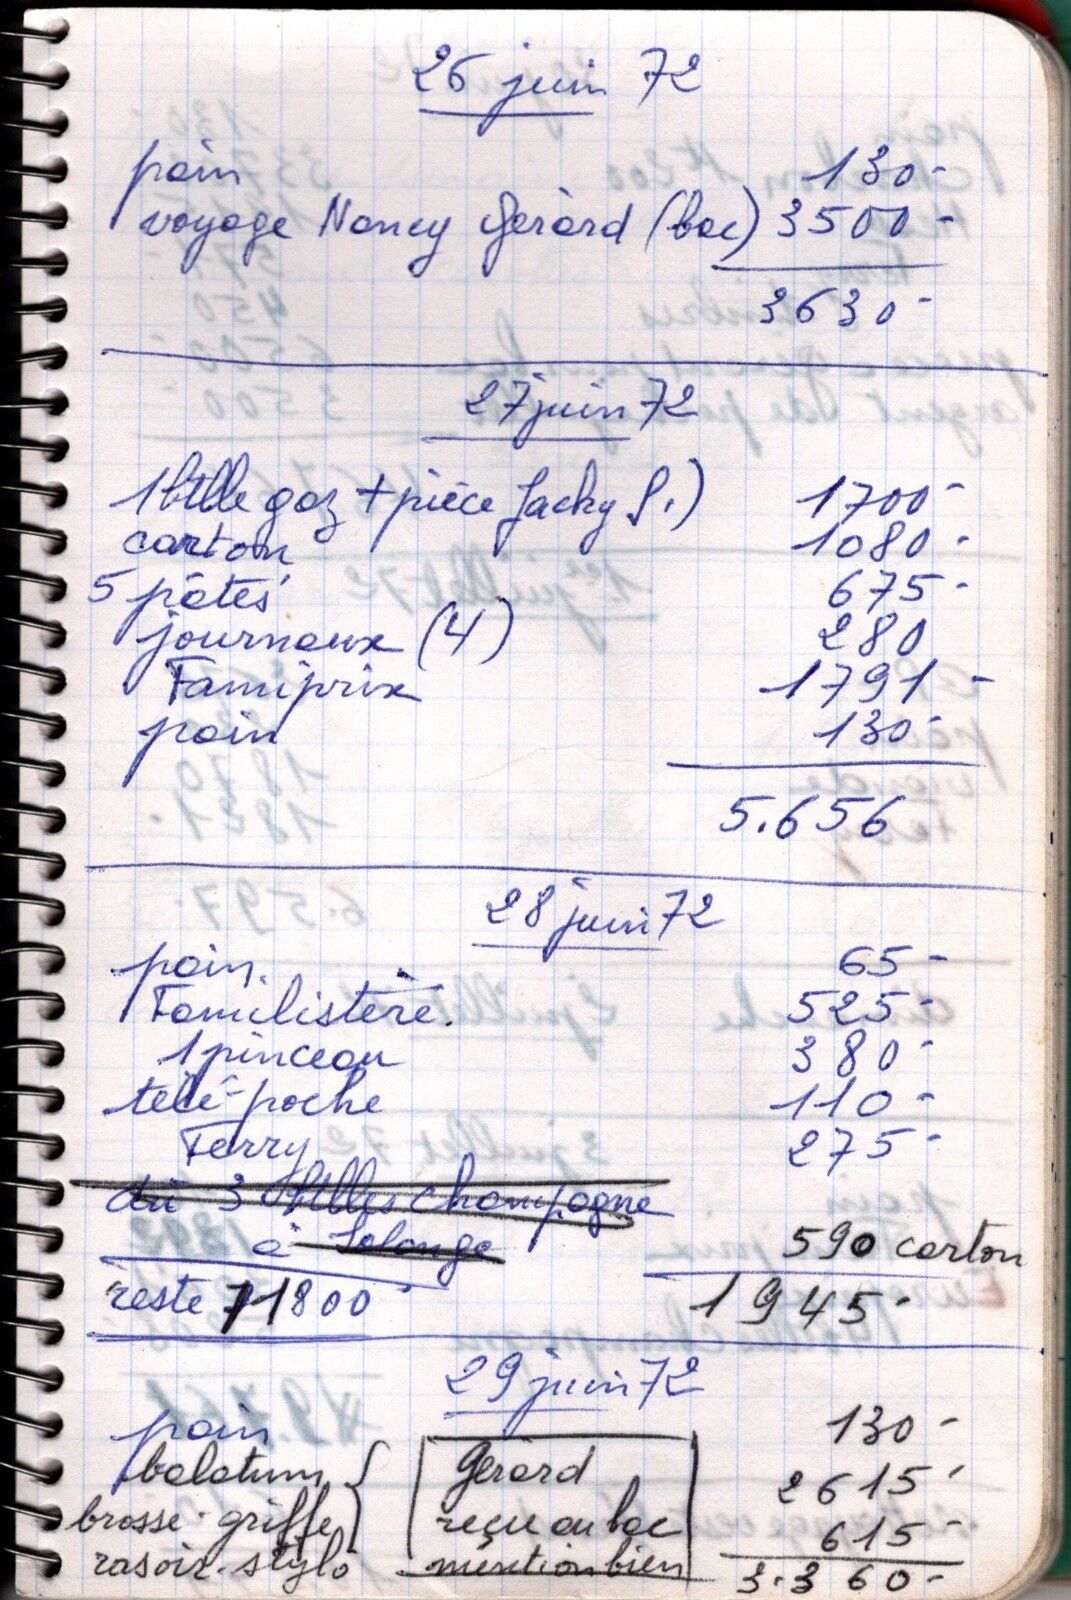 26 juin 72
pain 130-
voyage Nancy Gérard (bac) 3500-
3630-
27 juin 72
1 btlle gaz + pièce Jacky S.) 1700-
carton 1080-
5 pâtés 675-
journaux (4) 280
Famiprix 1791-
pain 130-
5.656
28 juin 72
pain. 65-
Familistère. 525-
1 pinceau 380-
télé-poche 110-
Ferry 275-
dû 3 btlles champagne
à Solange 590 carton
reste 71800 1945-
29 juin 72
pain 130-
balatum Gérard 2615-
brosse-griffe reçu au bac 615-
rasoir-stylo mention bien 3.360-